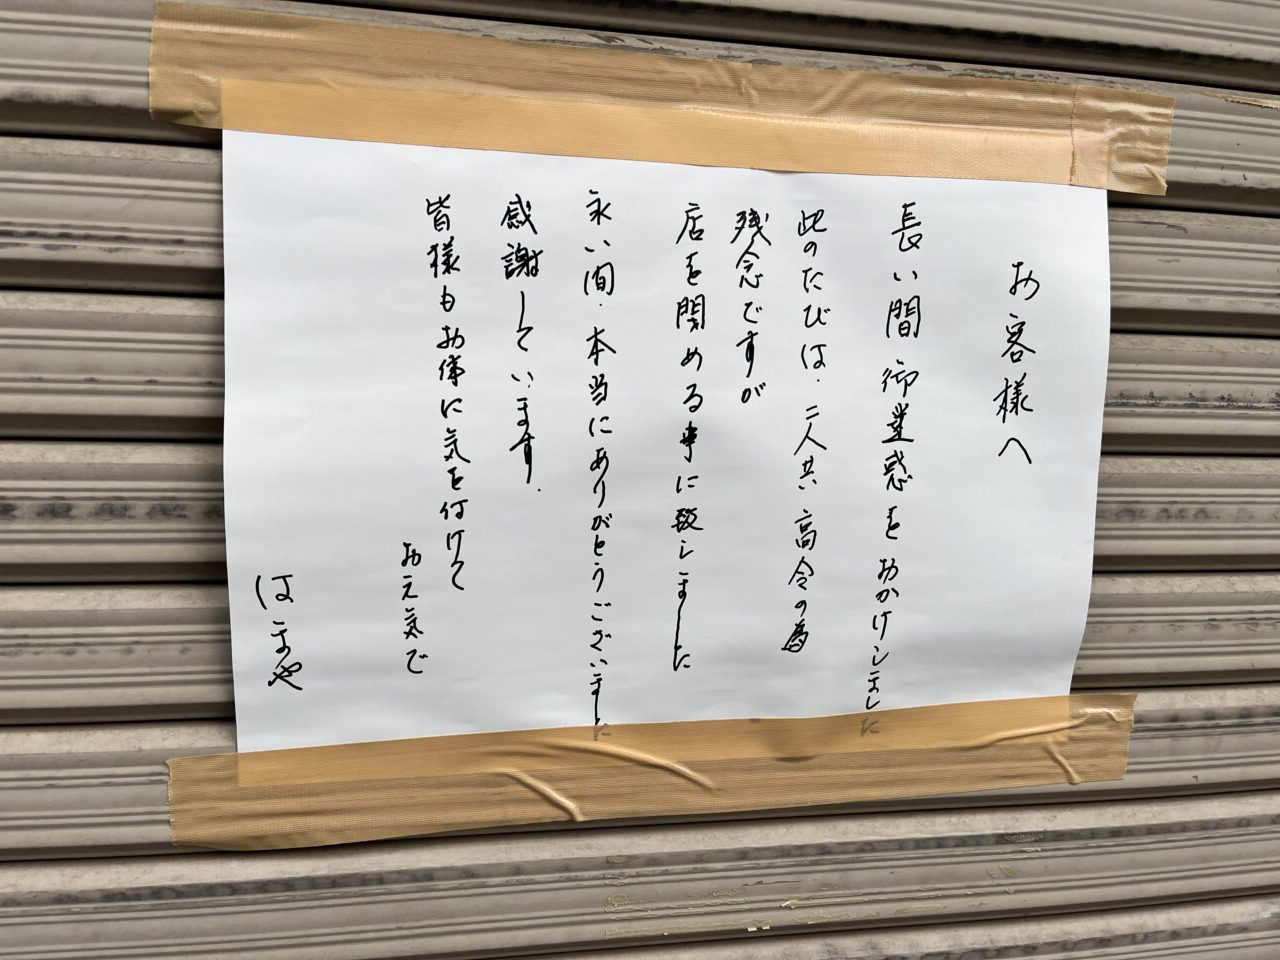 お客様へ
長い間御迷惑をおかけしました
此のたびは.二人共高令の為
残念ですが
店を閉める事に致しました
永い間.本当にありがとうございました
感謝しています.
皆様もお体に気を付けて
お元気で
はまや